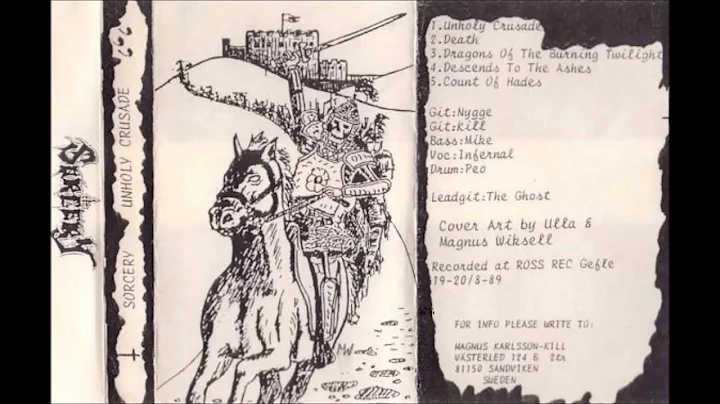 SORCERY
SORCERY UNHOLY CRUSADE 666
MW
1.Unholy Crusade
2.Death
3.Dragons Of The Burning Twilight
4.Descends To The Ashes
5.Count Of Hades
Git:Nygge
Git:Kill
Bass:Mike
Voc:Infernal
Drum:Peo
Leadgit:The Ghost
Cover Art by Ulla &
Magnus Wiksell
Recorded at ROSS REC Gefle
19-20/8-89
FOR INFO PLEASE WRITE TO:
MAGNUS KARLSSON-KILL
VÄSTERLED 124 B 2tr
81150 SANDVIKEN
SWEDEN